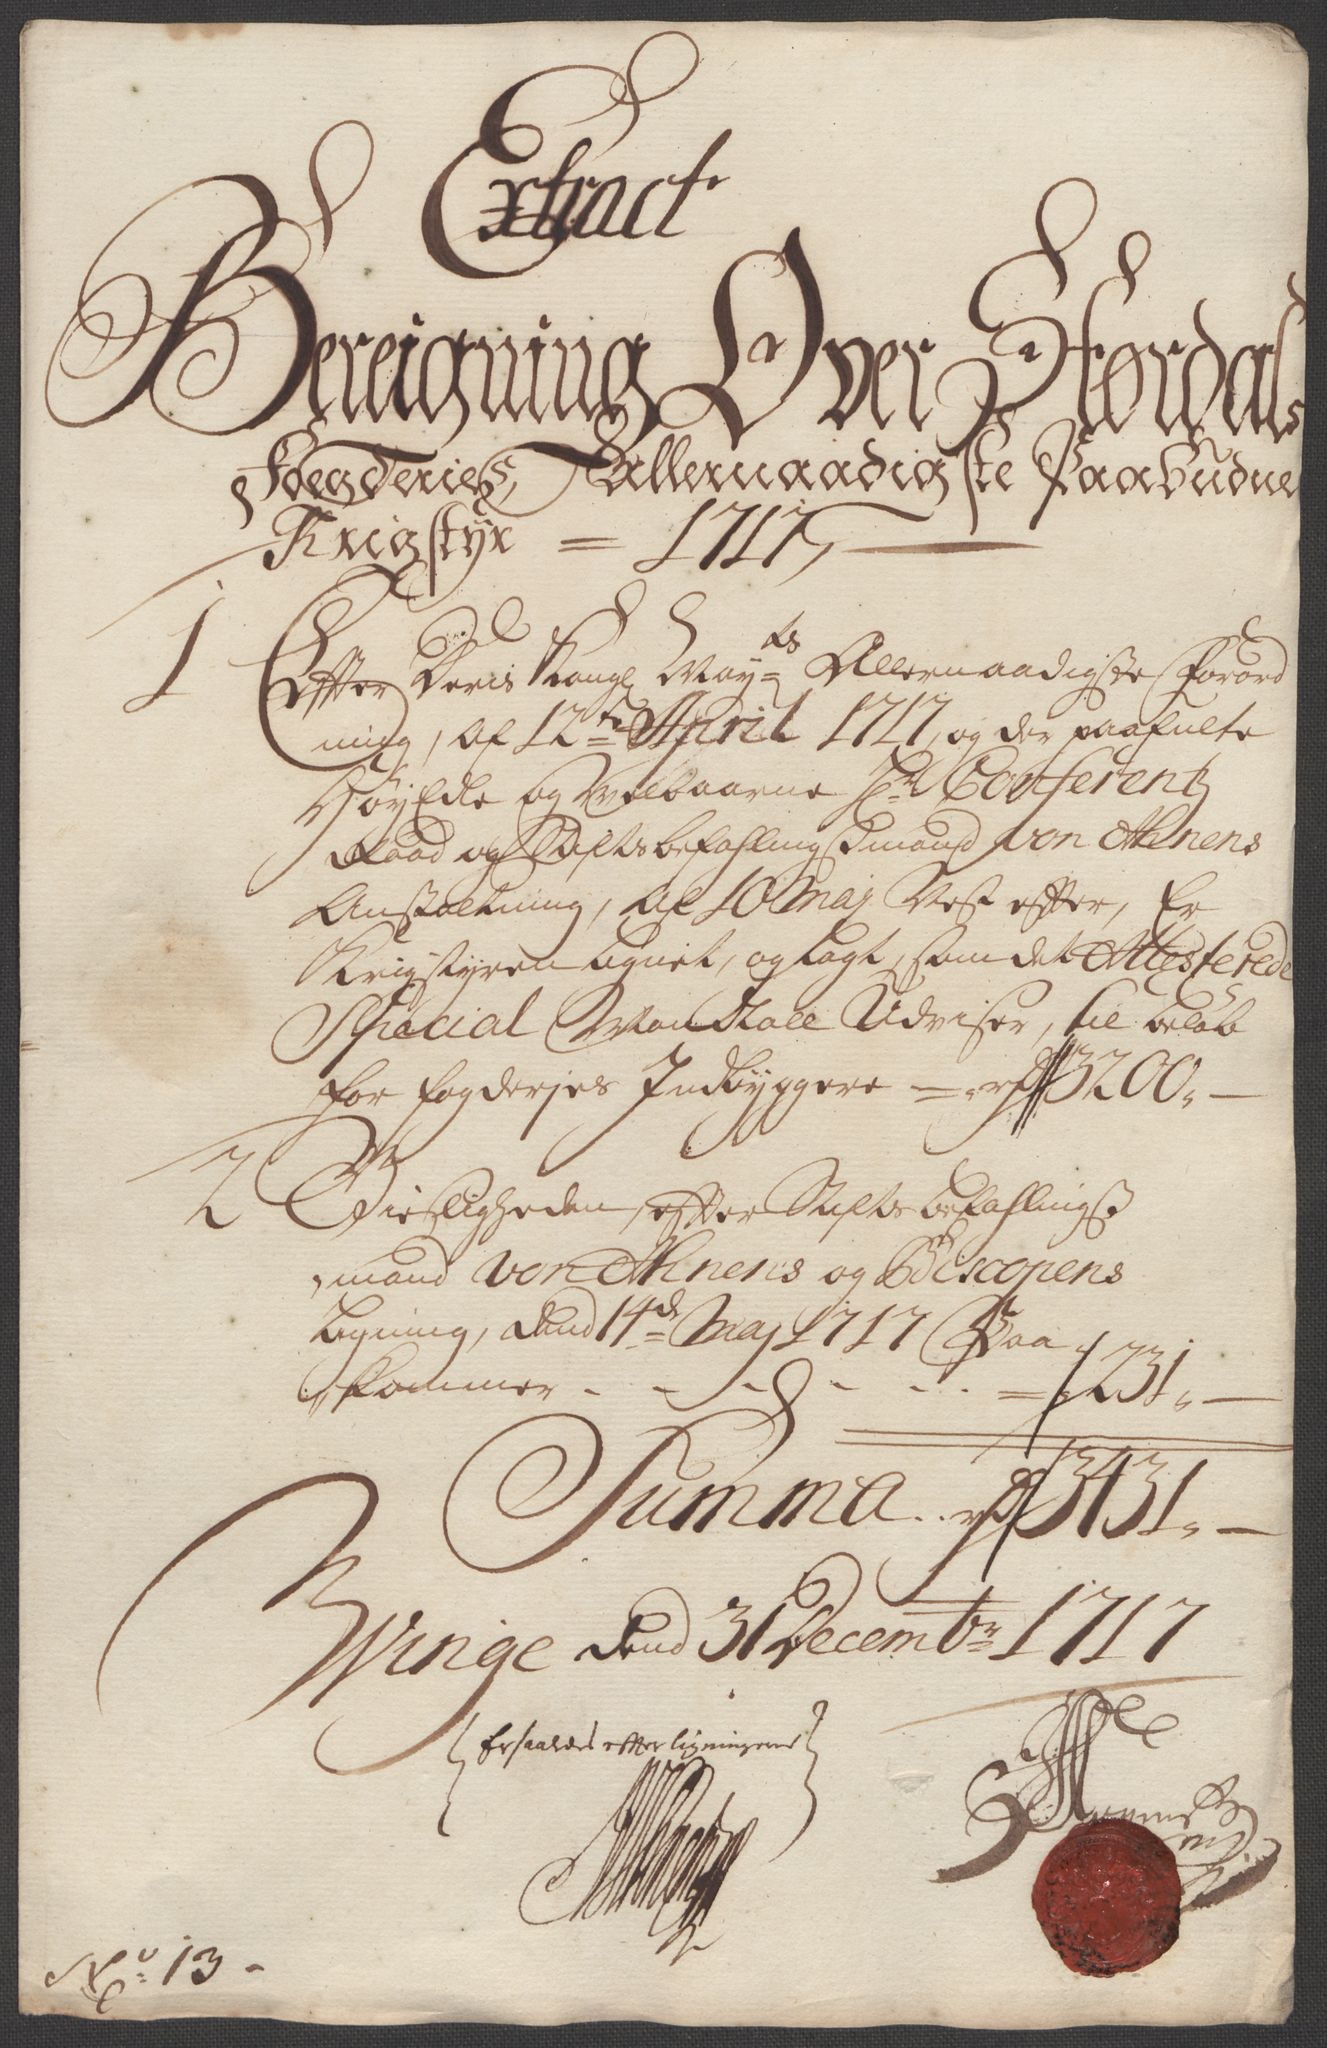 Extract
Bereigning Over Størdals
Fogderies, Allernaadigste Paabudne
Krigstÿr = 1717,
1 Effter Deris Kongl May:ts Allernaadigste Forord
ning, af 12te April 1717, og der paafulte
HøyEdle og Velbaarne Hr Conferentz
Raad og Stiftsbefahlingsmand von Ahnens
Anstaltning, af 10 Maj Nest efter, Er
Krigstyren lignet, og lagt, som det Attesterede
Special Mandtall Udviser, til beløb
for fogderjes Indbyggere = rd 3200"—
2 Gieistligheden, effter Stiftsbefahlings
mand von Ahnens og Biscopens
Ligning, dend 14de Maj 1717 Paa
kommer - - - - - = 231"—
Summa .. rd 3431"—
Winge dend 31 Decembr 1717
efter ligningerne
No: 13 -